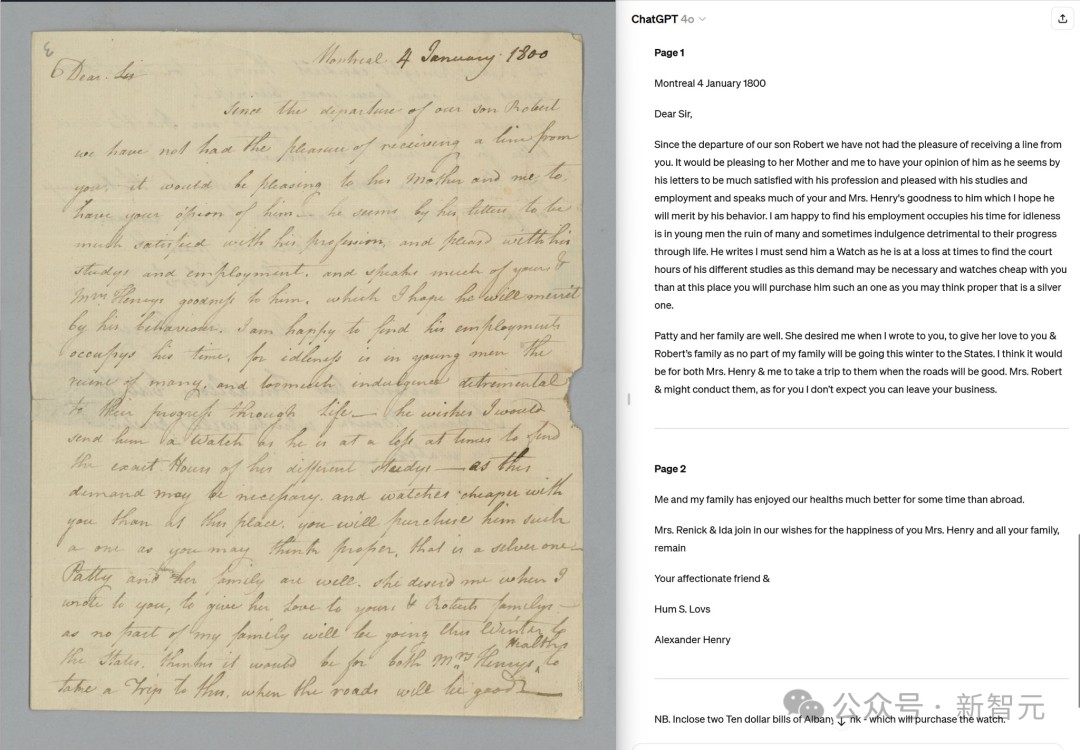 Montreal 4 January 1800
Dear Sir
Since the departure of our son Robert
we have not had the pleasure of receiving a line from
you. it would be pleasing to his Mother and me, to
have your opinion of him — he seems by his letters to be
much satisfied with his profission, and pleasd with his
studys and employment. and speaks much of yours &
Mrs Henrys goodness to him, which I hope he will merrit
by his behaviour. I am happy to find his employments
occupys his time, for idleness is in young men the
ruine of many, and toomuch indulgence detremental
to their progress through life — he wishes I would
send him a Watch as he is at a loss at times to find
the exact Hours of his different studys — as this
demand may be necessary. and watches cheaper with
you than at this place. you will purchase him such
a one as you may think proper, that is a silver one —
Patty and her family are well. she desird me when I
wrote to you, to give her Love to yours & Roberts familys —
as no part of my family will be going this Winter to
the States. thinks it would be for both Mrs Henrys Healths to
take a Trip to this, when the roads will be good —
ChatGPT 4o
Page 1
Montreal 4 January 1800
Dear Sir,
Since the departure of our son Robert we have not had the pleasure of receiving a line from
you. It would be pleasing to her Mother and me to have your opinion of him as he seems by
his letters to be much satisfied with his profession and pleased with his studies and
employment and speaks much of your and Mrs. Henry's goodness to him which I hope he
will merit by his behavior. I am happy to find his employment occupies his time for idleness
is in young men the ruin of many and sometimes indulgence detrimental to their progress
through life. He writes I must send him a Watch as he is at a loss at times to find the court
hours of his different studies as this demand may be necessary and watches cheap with you
than at this place you will purchase him such an one as you may think proper that is a silver
one.
Patty and her family are well. She desired me when I wrote to you, to give her love to you &
Robert's family as no part of my family will be going this winter to the States. I think it would
be for both Mrs. Henry & me to take a trip to them when the roads will be good. Mrs. Robert
& might conduct them, as for you I don't expect you can leave your business.
Page 2
Me and my family has enjoyed our healths much better for some time than abroad.
Mrs. Renick & Ida join in our wishes for the happiness of you Mrs. Henry and all your family,
remain
Your affectionate friend &
Hum S. Lovs
Alexander Henry
NB. Inclose two Ten dollar bills of Albany nk - which will purchase the watch.
公众号 · 新智元